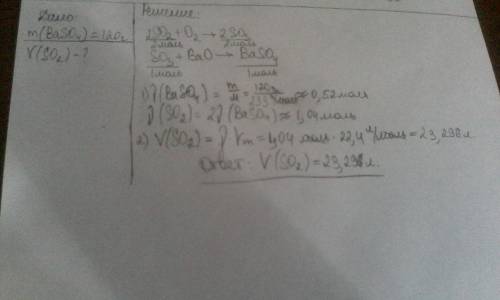 Дано:
m(BaSO₄) = 120г
V(SO₂) - ?
Решение:
2SO₂ + O₂ → 2SO₃
2моль 2моль
SO₃ + BaO → BaSO₄
1моль 1моль
1) ν(BaSO₄) = m/M = 120г/233г/моль ≈ 0,52моль
ν(SO₂) = 2ν(BaSO₄) ≈ 1,04моль
2) V(SO₂) = ν Vm = 1,04 моль · 22,4 л/моль = 23,296 л.
Ответ: V(SO₂) = 23,296 л.